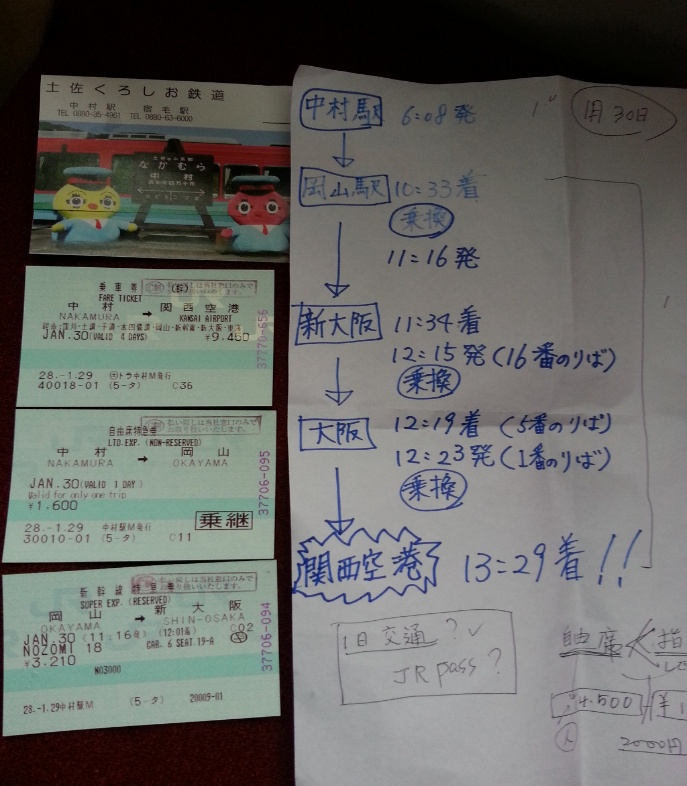 土佐くろしお鉄道
中村駅 宿毛駅
TEL 0880-35-4961 TEL 0880-63-6000
なかむら
中村
乗車券 (幹)
FARE TICKET
中村 → 関西空港
NAKAMURA KANSAI AIRPORT
JAN.30(VALID 4 DAYS) ¥9,450
28.-1.29 中村M発行
40018-01 (5-タ) C36
37770-656
自由席特急券
LTD.EXP. (NON-RESERVED)
中村 → 岡山
NAKAMURA OKAYAMA
JAN.30(VALID 1 DAY)
Valid for only one trip
¥1,600
乗継
28.-1.29 中村駅M発行
30010-01 (5-タ) C11
37706-095
新幹線特急券
SUPER EXP. (RESERVED)
岡山 → 新大阪
OKAYAMA SHIN-OSAKA
JAN.30 (11:16発) (12:01着) C02
NOZOMI 18 CAR. 6 SEAT.19-A
¥3,210
28.-1.29中村駅M (5-タ) 20009-01
37706-094
中村駅 6:08発 1月30日
岡山駅 10:33着
乗換
11:16発
新大阪 11:34着
12:15発(16番のりば)
乗換
大阪 12:19着 (5番のりば)
12:23発(1番のりば)
乗換
関西空港 13:29着!!
1日交通?
JR pass?
自由席 < 指
4,500
人
2000円